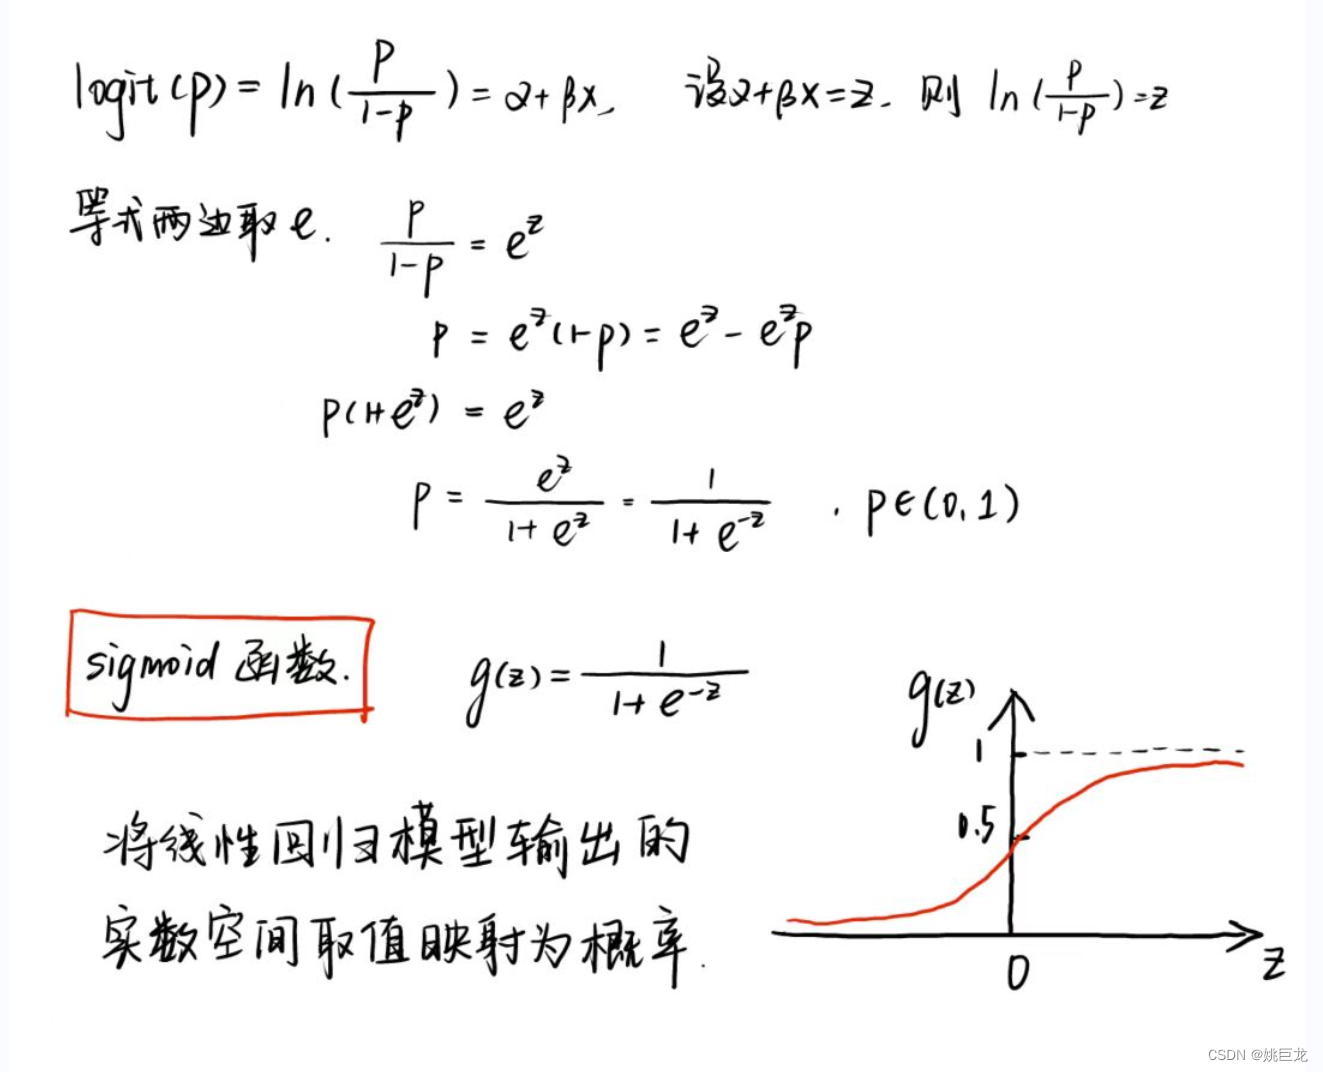 logit(p) = ln(p/(1-p)) = α+βx, 设α+βx=z. 则 ln(p/(1-p))=z
等式两边取e. p/(1-p) = e^z
p = e^z(1-p) = e^z - e^z p
p(1+e^z) = e^z
p = e^z/(1+e^z) = 1/(1+e^-z) . p∈(0,1)
sigmoid 函数. g(z) = 1/(1+e^-z)
g(z)
1
0.5
0
z
将线性回归模型输出的
实数空间取值映射为概率.
CSDN @姚巨龙